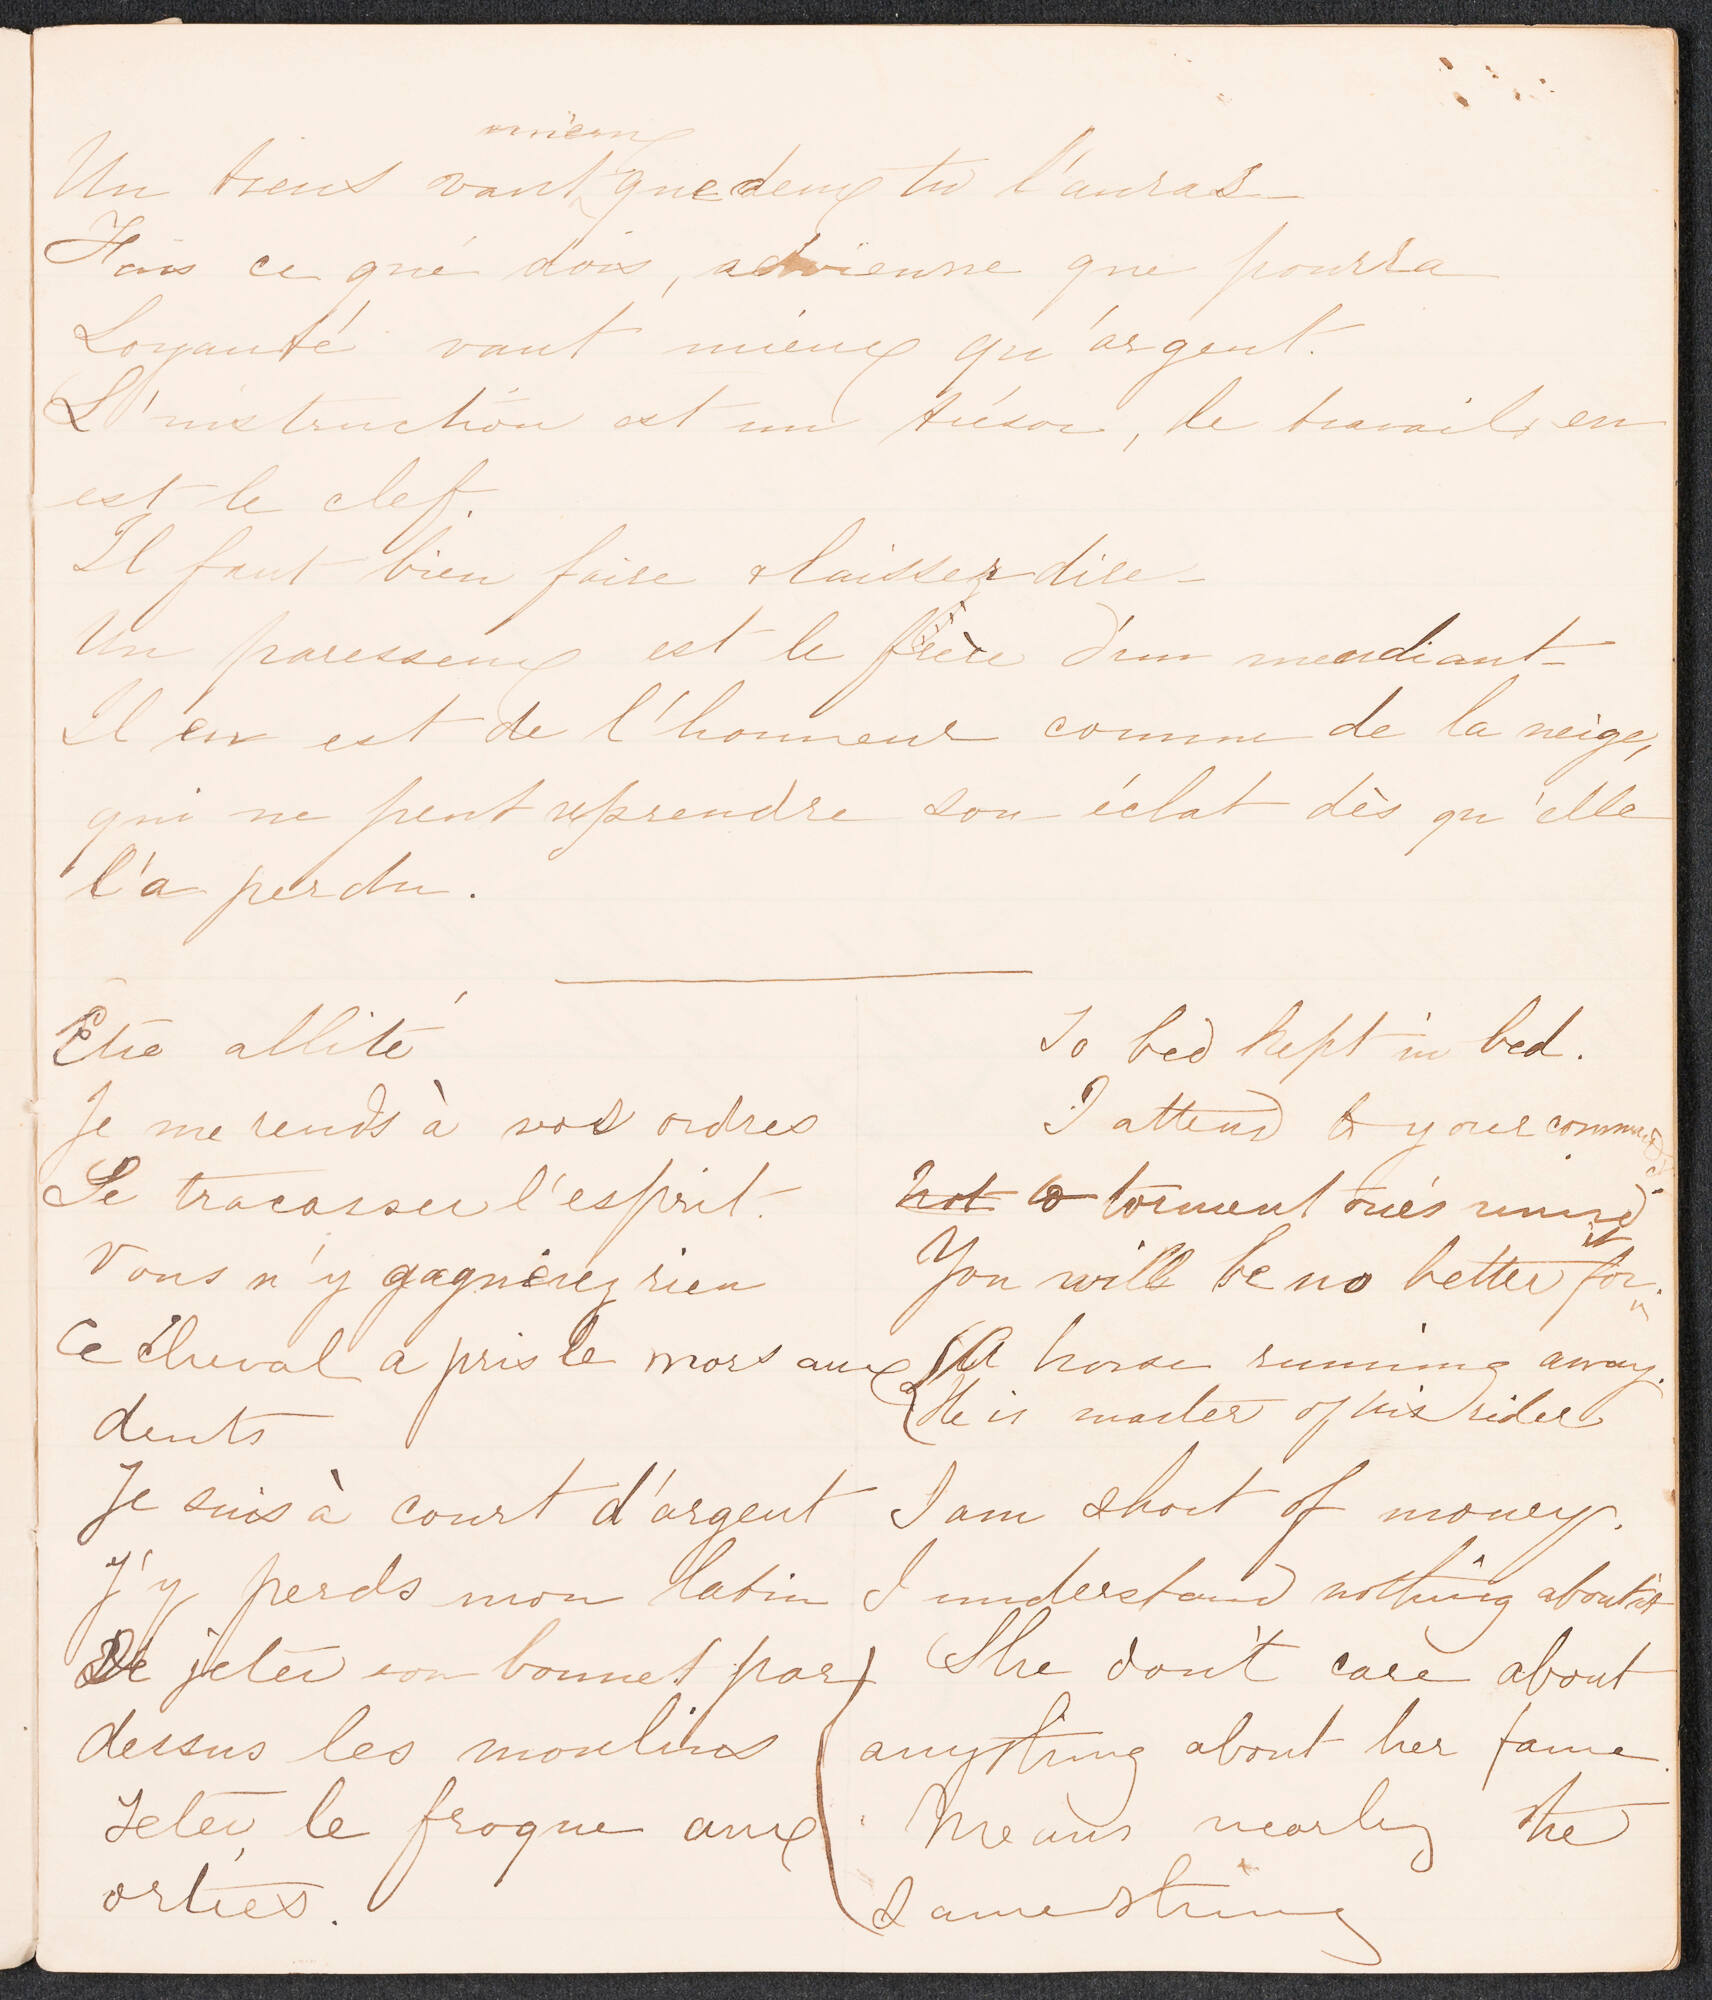 mieux
Un tiens vaut que deux tu l'auras
Fais ce que dois, advienne que pourra
Loyauté vaut mieux qu'argent.
L'instruction est un trésor, le travail en
est le clef.
Il faut bien faire & laisser dire
Un paresseux est le frère d'un mendiant
Il en est de l'honneur comme de la neige,
qui ne peut reprendre son éclat dès qu'elle
l'a perdu.
Etre allité To bed kept in bed.
Je me rends à vos ordres I attend to your command
Se tracasser l'esprit. Not to torment one's mind
Vous n'y gagnerez rien You will be no better for it
Ce cheval a pris le mors aux A horse running away.
dents He is master of his rider
Je suis à court d'argent I am short of money.
J'y perds mon latin I understand nothing about it
De jeter son bonnet par She don't care about
dessus les moulins anything about her fame.
Jeter le froque aux Means nearly the
orties. same thing